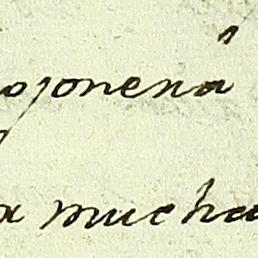 ojonená
a mucha